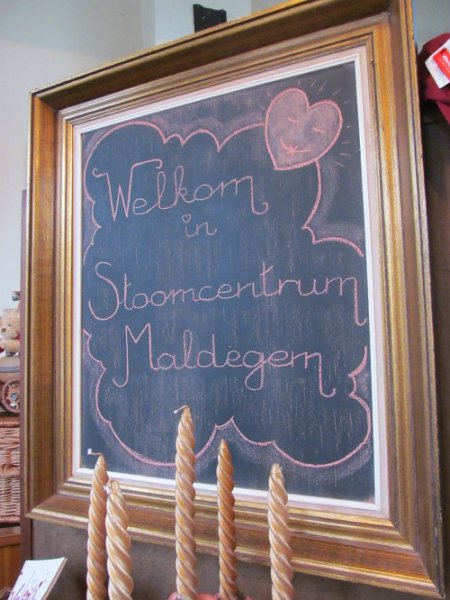 Welkom
in
Stoomcentrum
Maldegem